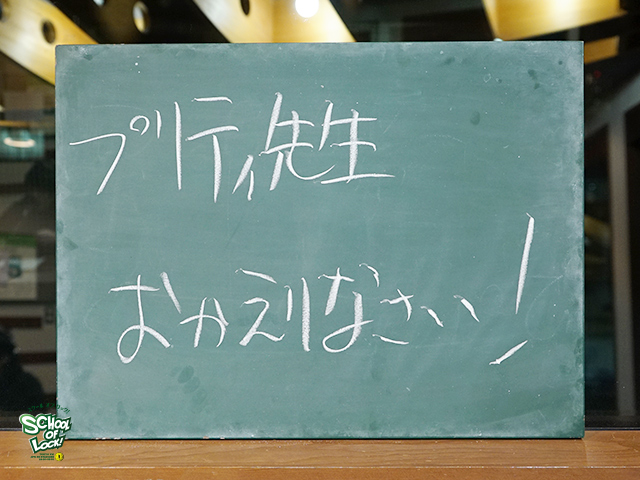 プリティ先生
おかえりなさい!
SCHOOL
OF
LOCK!